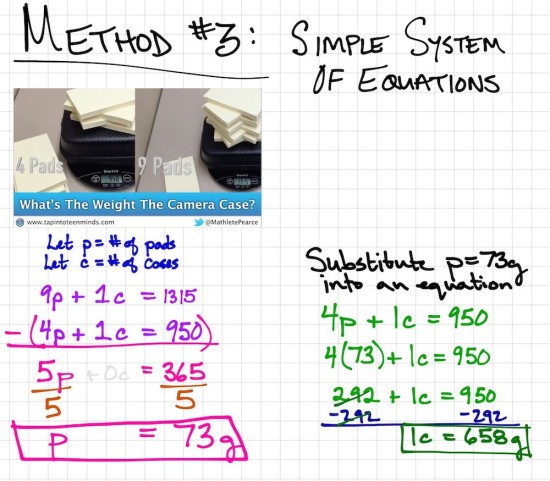 METHOD #3:
SIMPLE SYSTEM
OF EQUATIONS
4 Pads
9 Pads
What's The Weight The Camera Case?
www.tapintoteenminds.com
@MathletePearce
Let p = # of pads
Let c = # of cases
9p + 1c = 1315
- (4p + 1c = 950)
5p + 0c = 365
5 5
p = 73g
Substitute p=73g
into an equation
4p + 1c = 950
4(73) + 1c = 950
292 + 1c = 950
-292 -292
1c = 658g